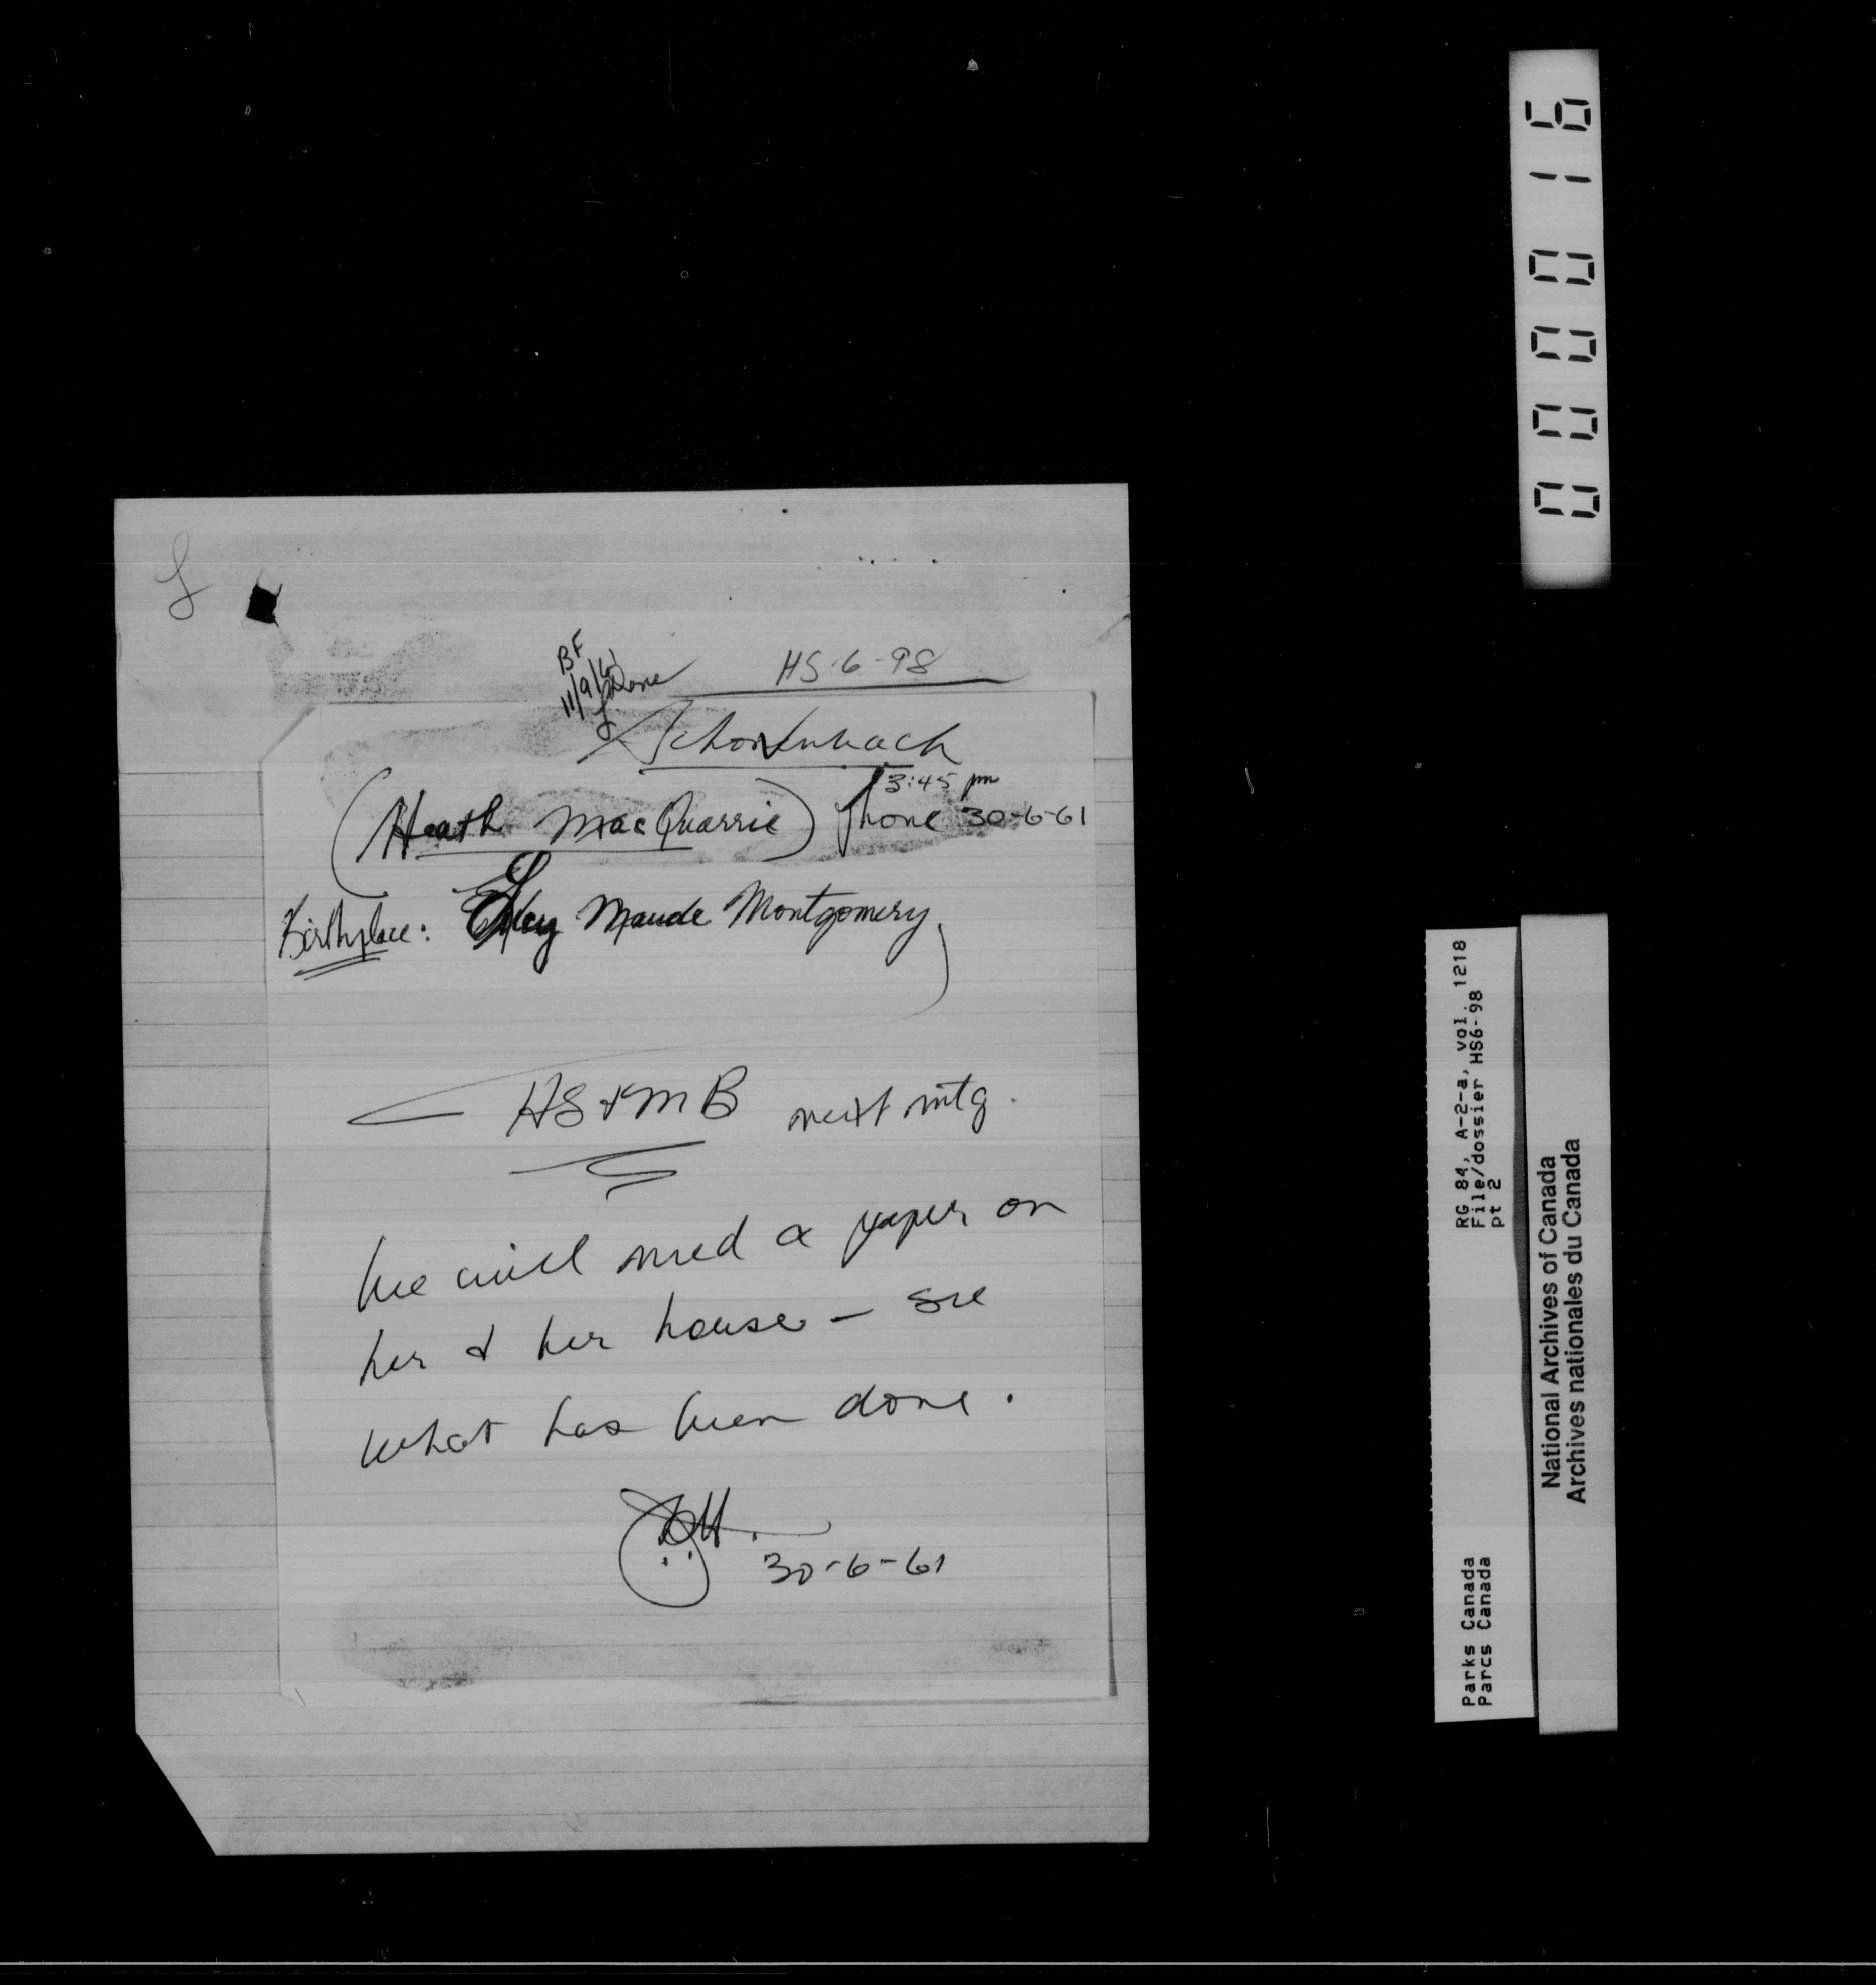 BF
11/9/61
Done
HS·6-98
Schonenbach
3:45 pm
(Heath MacQuarrie) Phone 30-6-61
Birthplace: Maude Montgomery
HS&MB next mtg.
We will need a paper on
her & her house - see
what has been done.
30-6-61
000016
RG 84, A-2-a, vol. 1218
File/dossier HS6-98
pt 2
Parks Canada
Parcs Canada
National Archives of Canada
Archives nationales du Canada